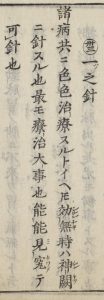 (丗)一之針
諸病共ニ色色治療スルトイヘ𪜈效無時ハ神闕
ニ針スル也最モ療治大事也能能見究テ
可針也